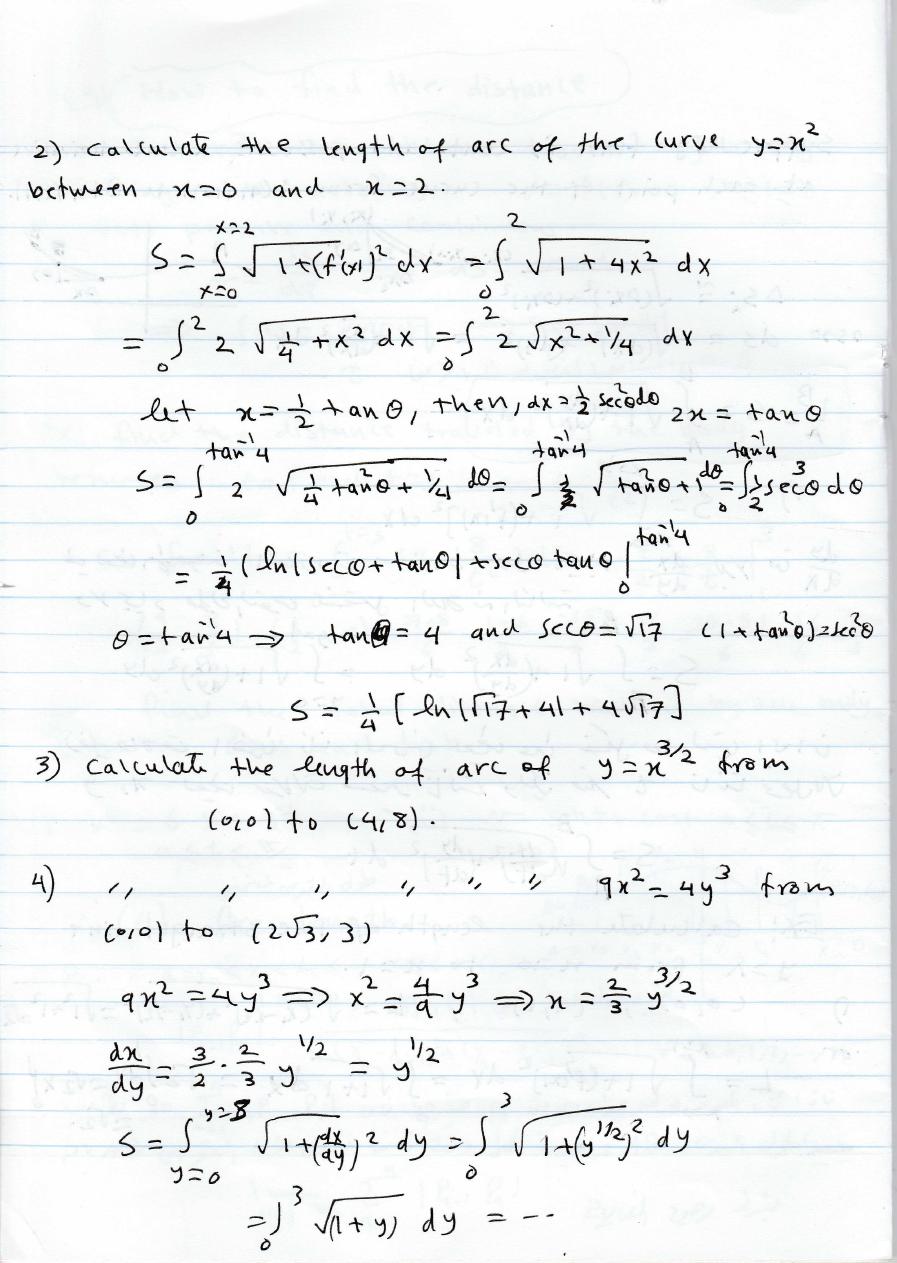 2) Calculate the length of arc of the curve y=x²
between x=0 and x=2.
S = ∫_{x=0}^{x=2} √(1+(f'(x))² dx = ∫_0^2 √(1 + 4x²) dx
= ∫_0^2 2 √(1/4 + x²) dx = ∫_0^2 2 √(x² + 1/4) dx
let x = 1/2 tan θ, then, dx = 1/2 sec²θ dθ 2x = tan θ
S = ∫_0^{tan⁻¹4} 2 √(1/4 tan²θ + 1/4) dθ = ∫_0^{tan⁻¹4} √(tan²θ + 1) dθ = ∫_0^{tan⁻¹4} 1/2 sec³θ dθ
= 1/4 (ln|secθ + tanθ| + secθ tanθ |_0^{tan⁻¹4}
θ = tan⁻¹4 ⇒ tanθ = 4 and secθ = √17 (1 + tan²θ) = sec²θ
S = 1/4 [ ln|√17 + 4| + 4√17 ]
3) Calculate the length of arc of y = x^{3/2} from
(0,0) to (4,8).
4) " " " " " " 9x² = 4y³ from
(0,0) to (2√3, 3)
9x² = 4y³ ⇒ x² = 4/9 y³ ⇒ x = 2/3 y^{3/2}
dx/dy = 3/2 · 2/3 y^{1/2} = y^{1/2}
S = ∫_{y=0}^{y=3} √(1+(dx/dy)²) dy = ∫_0^3 √(1+(y^{1/2})²) dy
= ∫_0^3 √(1+y) dy = --